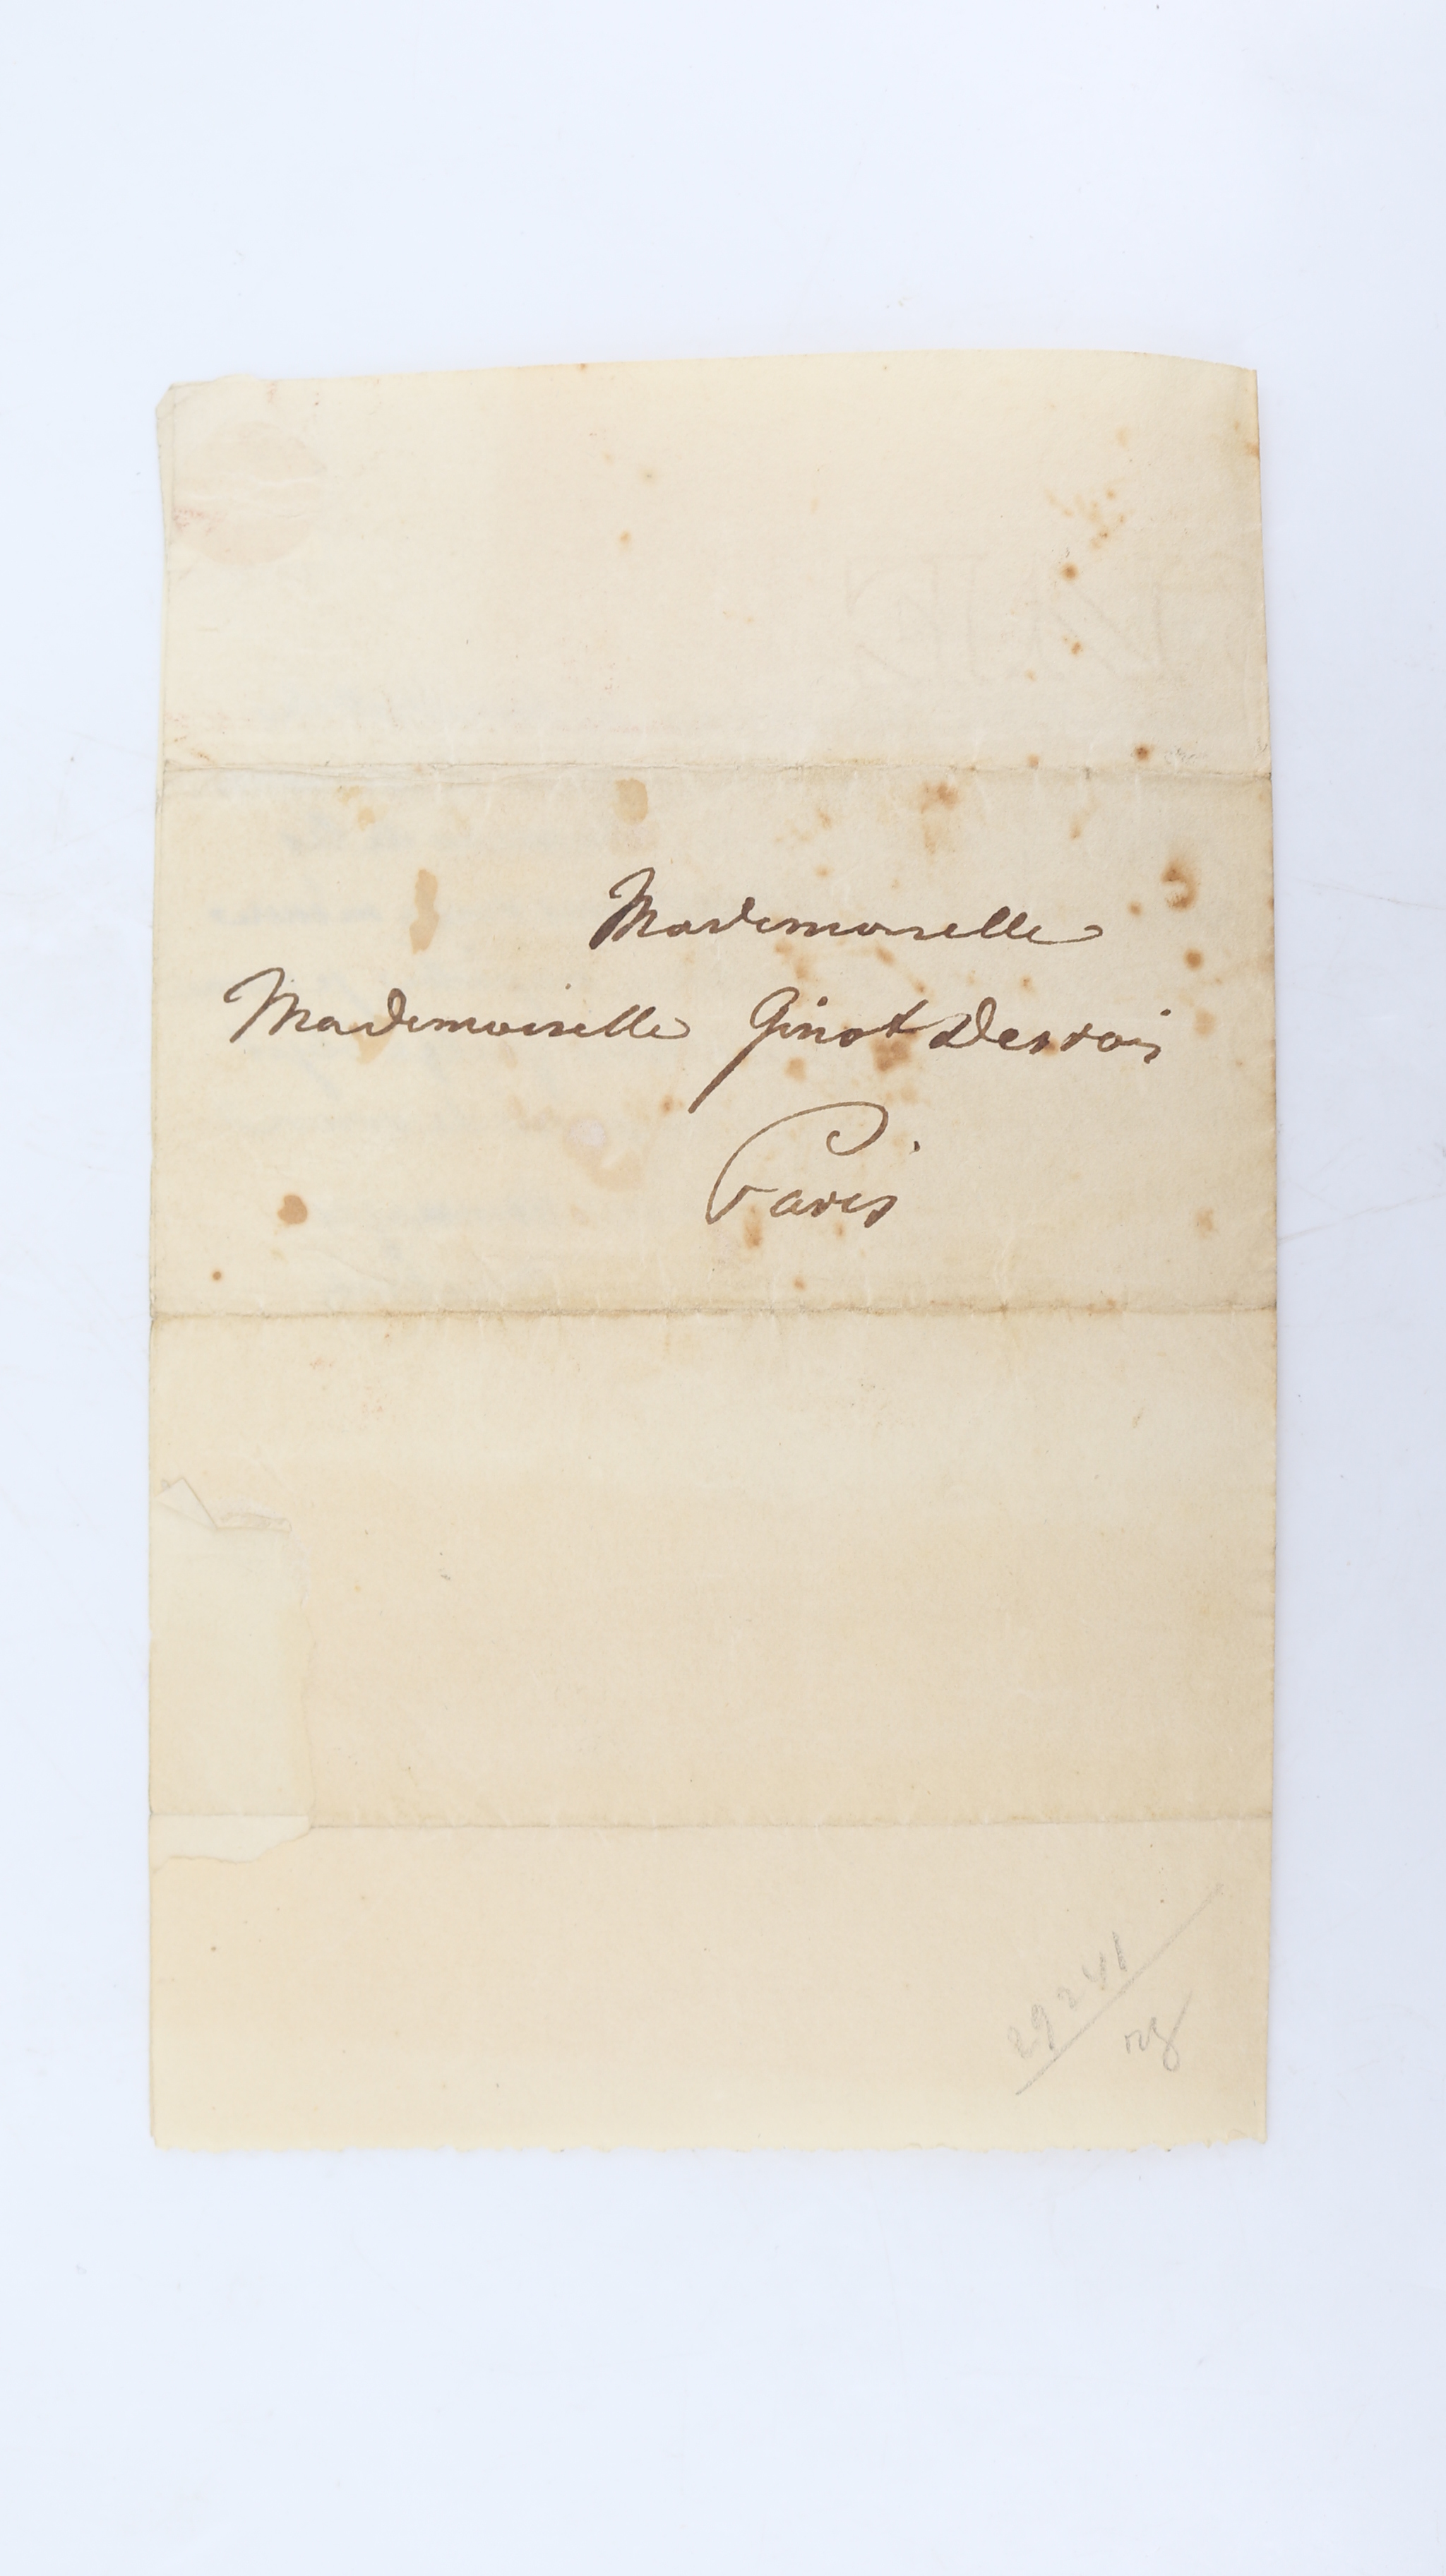 Mademoiselle
Mademoiselle Ginot Desrois
Paris
29241